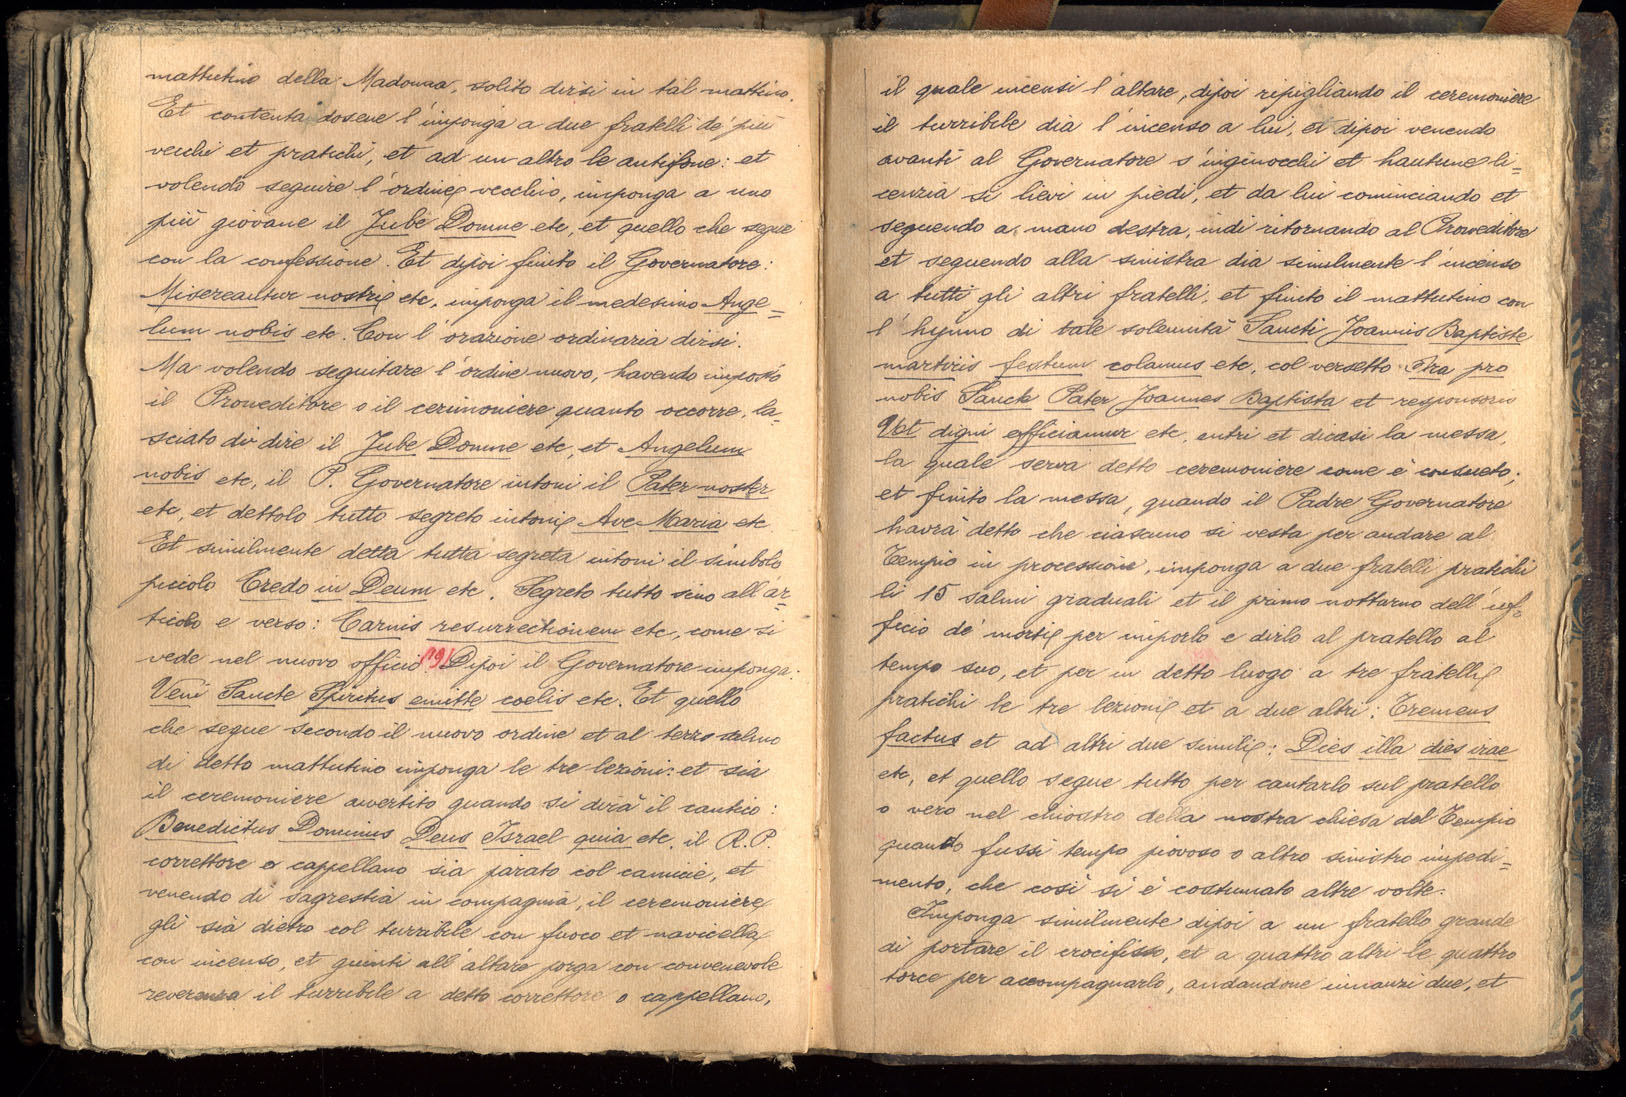 mattutino della Madonna, solito dirsi in tal mattino.
Et contentandosene l'imponga a due fratelli de' più
vecchi et pratichi, et ad un altro le antifone: et
volendo seguire l'ordine vecchio, imponga a uno
più giovane il Jube Domne etc, et quello che segue
con la confessione. Et dipoi finito il Governatore:
Misereantur nostri etc, imponga il medesimo Ange=
lum nobis etc. Con l'orazione ordinaria dirsi.
Ma volendo seguitare l'ordine nuovo, havendo imposto
il Proveditore o il cerimoniere quanto occorre, la=
sciato di dire il Jube Domne etc, et Angelum
nobis etc, il P. Governatore intoni il Pater noster
etc, et dettolo tutto segreto intoni Ave Maria etc
Et similmente detta tutta segreta intoni il simbolo
piccolo Credo in Deum etc. Segreto tutto sino all'ar=
ticolo e verso: Carnis resurrectionem etc, come si
vede nel nuovo officio (19) Dipoi il Governatore imponga:
Veni Sancte Spiritus emitte coelis etc. Et quello
che segue secondo il nuovo ordine et al terzo salmo
di detto mattutino imponga le tre lezioni: et sia
il ceremoniere avvertito quando si dirà il cantico:
Benedictus Dominus Deus Israel quia etc, il R. P.
correttore o cappellano sia parato col camicie, et
venendo di sagrestia in compagnia, il ceremoniere
gli sia dietro col turribile con fuoco et navicella
con incenso, et giunti all'altare porga con convenevole
reverenza il turribile a detto correttore o cappellano,
il quale incensi l'altare, dipoi ripigliando il ceremoniere
il turribile dia l'incenso a lui, et dipoi venendo
avanti al Governatore s'inginocchi et hautune li=
cenzia si lievi in piedi, et da lui cominciando et
seguendo a mano destra, indi ritornando al Proveditore
et seguendo alla sinistra dia similmente l'incenso
a tutti gli altri fratelli, et finito il mattutino con
l'hynno di tale solennità Sancti Joannis Baptiste
martiris festum colamus etc, col versetto Ora pro
nobis Sancte Pater Joannes Baptista et responsorio
Ut digni efficiamur etc, entri et dicasi la messa,
la quale serva detto ceremoniere come è consueto;
et finito la messa, quando il Padre Governatore
havrà detto che ciascuno si vesta per andare al
Tempio in processione, imponga a due fratelli pratichi
li 15 salmi graduali et il primo notturno dell'uf=
ficio de' morti per imporlo e dirlo al pratello al
tempo suo, et per in detto luogo a tre fratelli
pratichi le tre lezioni et a due altri: Tremens
factus et ad altri due simili: Dies illa dies irae
etc, et quello segue tutto per cantarlo sul pratello
o vero nel chiostro della nostra chiesa del Tempio
quando fussi tempo piovoso o altro sinistro impedi=
mento, che così si è costumato altre volte.
Imponga similmente dipoi a un fratello grande
di portare il crocifisso, et a quattro altri le quattro
torce per accompagnarlo, andandone innanzi due, et